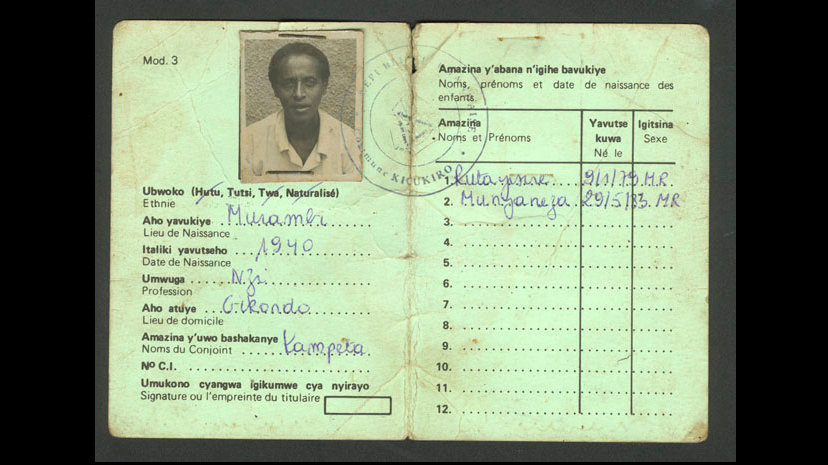 Mod. 3
Ubwoko (Hutu, Tutsi, Twa, Naturalisé)
Ethnie
Aho yavukiye Murambi
Lieu de Naissance
Italiki yavutseho 1940
Date de Naissance
Umwuga Nzi
Profession
Aho atuye Gikondo
Lieu de domicile
Amazina y'uwo bashakanye
Noms du Conjoint Kampeta
No C.I.
Umukono cyangwa igikumwe cya nyirayo
Signature ou l'empreinte du titulaire
COMMUNE KICUKIRO
Amazina y'abana n'igihe bavukiye
Noms, prénoms et date de naissance des
enfants.
Amazina Yavutse Igitsina
Noms et Prénoms kuwa Sexe
Né le
1. Rutayisire 9/1/79 MR
2. Munyaneza 29/5/83 MR
3.
4.
5.
6.
7.
8.
9.
10.
11.
12.